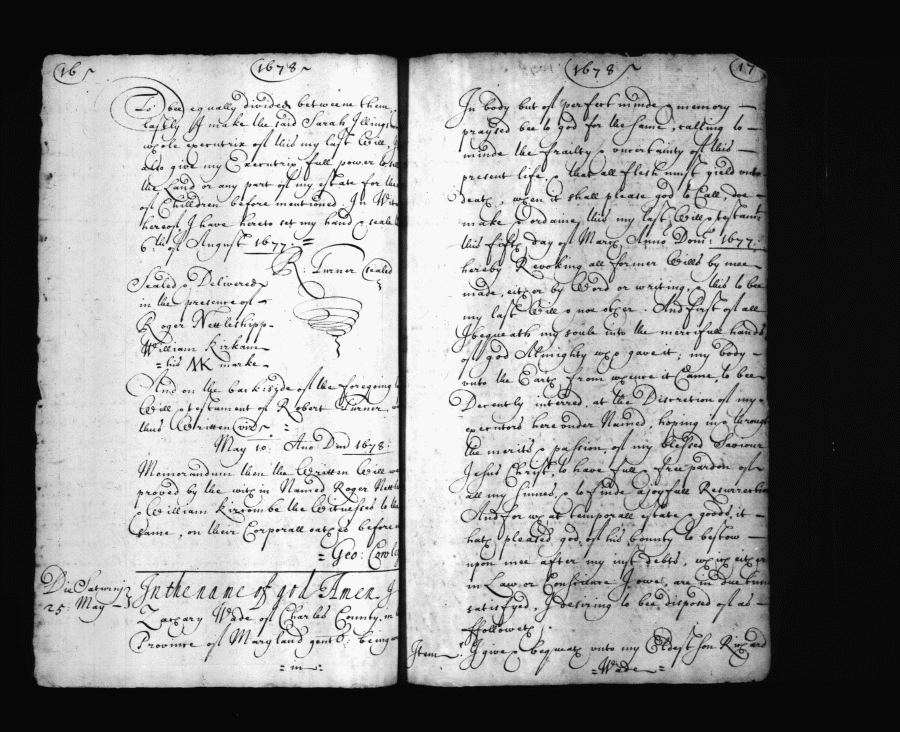 16
1678
To bee equally divided betweene them,
lastly I make the said Sarah Illings
whole executrix of this my last Will, I
also give my Executrix full power to sell
the Land or any part of my estate for the
of Children before mentioned. In Wit
hereof, I have hereto set my hand & seale
6th of August 1677:=
R: Turner (sealed
Sealed & Delivered
in the presence of
Roger Nettlshipp
William Kirkam
=his NK marke
And on the backside of the foregoing
Will & testament of Robert Turner,
thus Written vizt
May 10: Ano Dni 1678:
Memorandum then the Written Will we
proved by the with in Named Roger Nettl
& William Kircombe the Witnesses to the
same, on their Corporall oathes before
=Geo: Cowl
Die Saturnij
25: May
In the name of god Amen, I
Zachary Wade of Charles County, in
Province of Maryland gent: being
=in=
1678
17
In body but of perfect minde & memory
praysed bee to god for the same, calling to
minde the frailty & uncertainty of this
present life, & that all flesh must yield unto
Death, when it shall please god to Call, doe
make & ordaine this my last Will & testamt
this fifth day of March Anno Dom: 1677:
hereby Revoking all former Wills by mee
made, either by Word or writing, & this to bee
my last Will & noe other. And first of all
I bequeath my soule into the mercifull hands
of god Almighty who gave it; my body
unto the Earth from whence it Came to bee
Decently interred, at the Discretion of my
executors hereunder Named, hoping in & through
the merits & passion, of my blessed Saviour
Jesus Christ, to have full & free pardon of
all my sinnes, & to finde a joyfull Resurrection
And for what temporall estate & goods it
hath pleased god of his bounty to bestow
upon mee after my just debts, which either
in Law or Conscience I owe, are in due time
satisfyed, I desiring to bee disposed of as
ffolloweth
Item I give & bequeath unto my Eldest son Richard
=Wade=